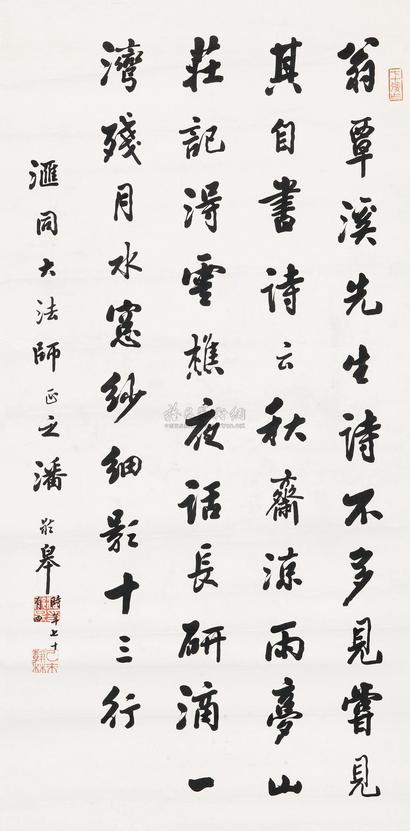 翁覃溪先生詩不多見嘗見
其自書詩云秋齋涼雨夢山
莊記淂雪樵夜話長研滴一
灣殘月水窓紗細影十三行
滙同大法師正之潘齡皋時年七十有四